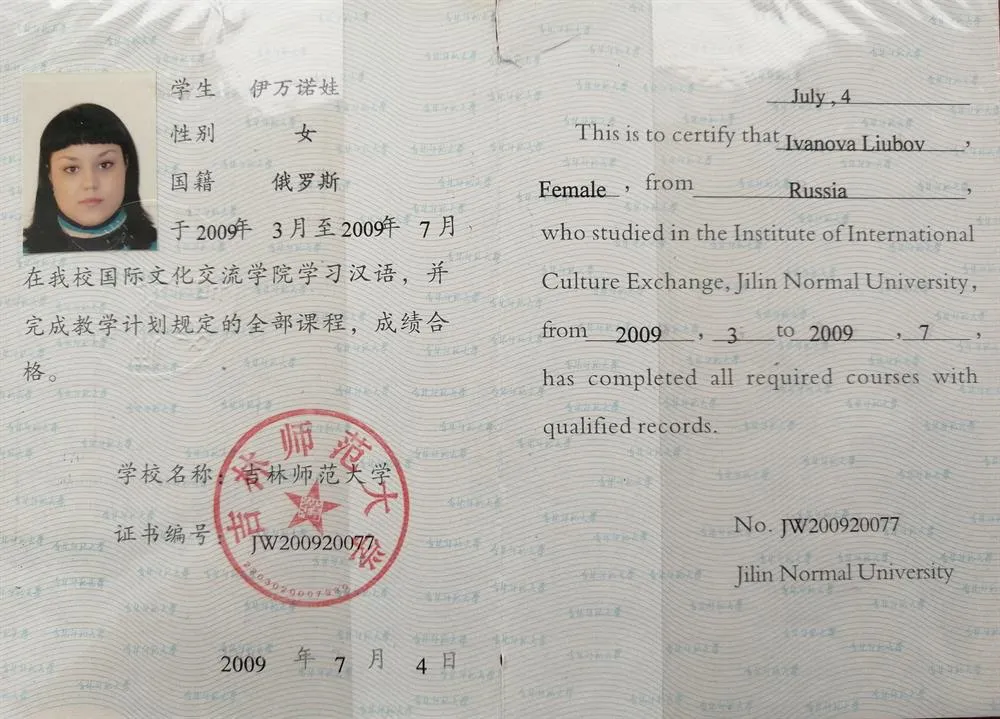 学生 伊万诺娃
性别 女
国籍 俄罗斯
于 2009年 3 月至 2009年 7 月
在我校国际文化交流学院学习汉语，并
完成教学计划规定的全部课程，成绩合
格。
学校名称：吉林师范大学
证书编号：JW200920077
吉林师范大学
2009 年 7 月 4 日
July , 4
This is to certify that Ivanova Liubov ,
Female , from Russia ,
who studied in the Institute of International
Culture Exchange, Jilin Normal University,
from 2009 , 3 to 2009 , 7 ,
has completed all required courses with
qualified records.
No. JW200920077
Jilin Normal University